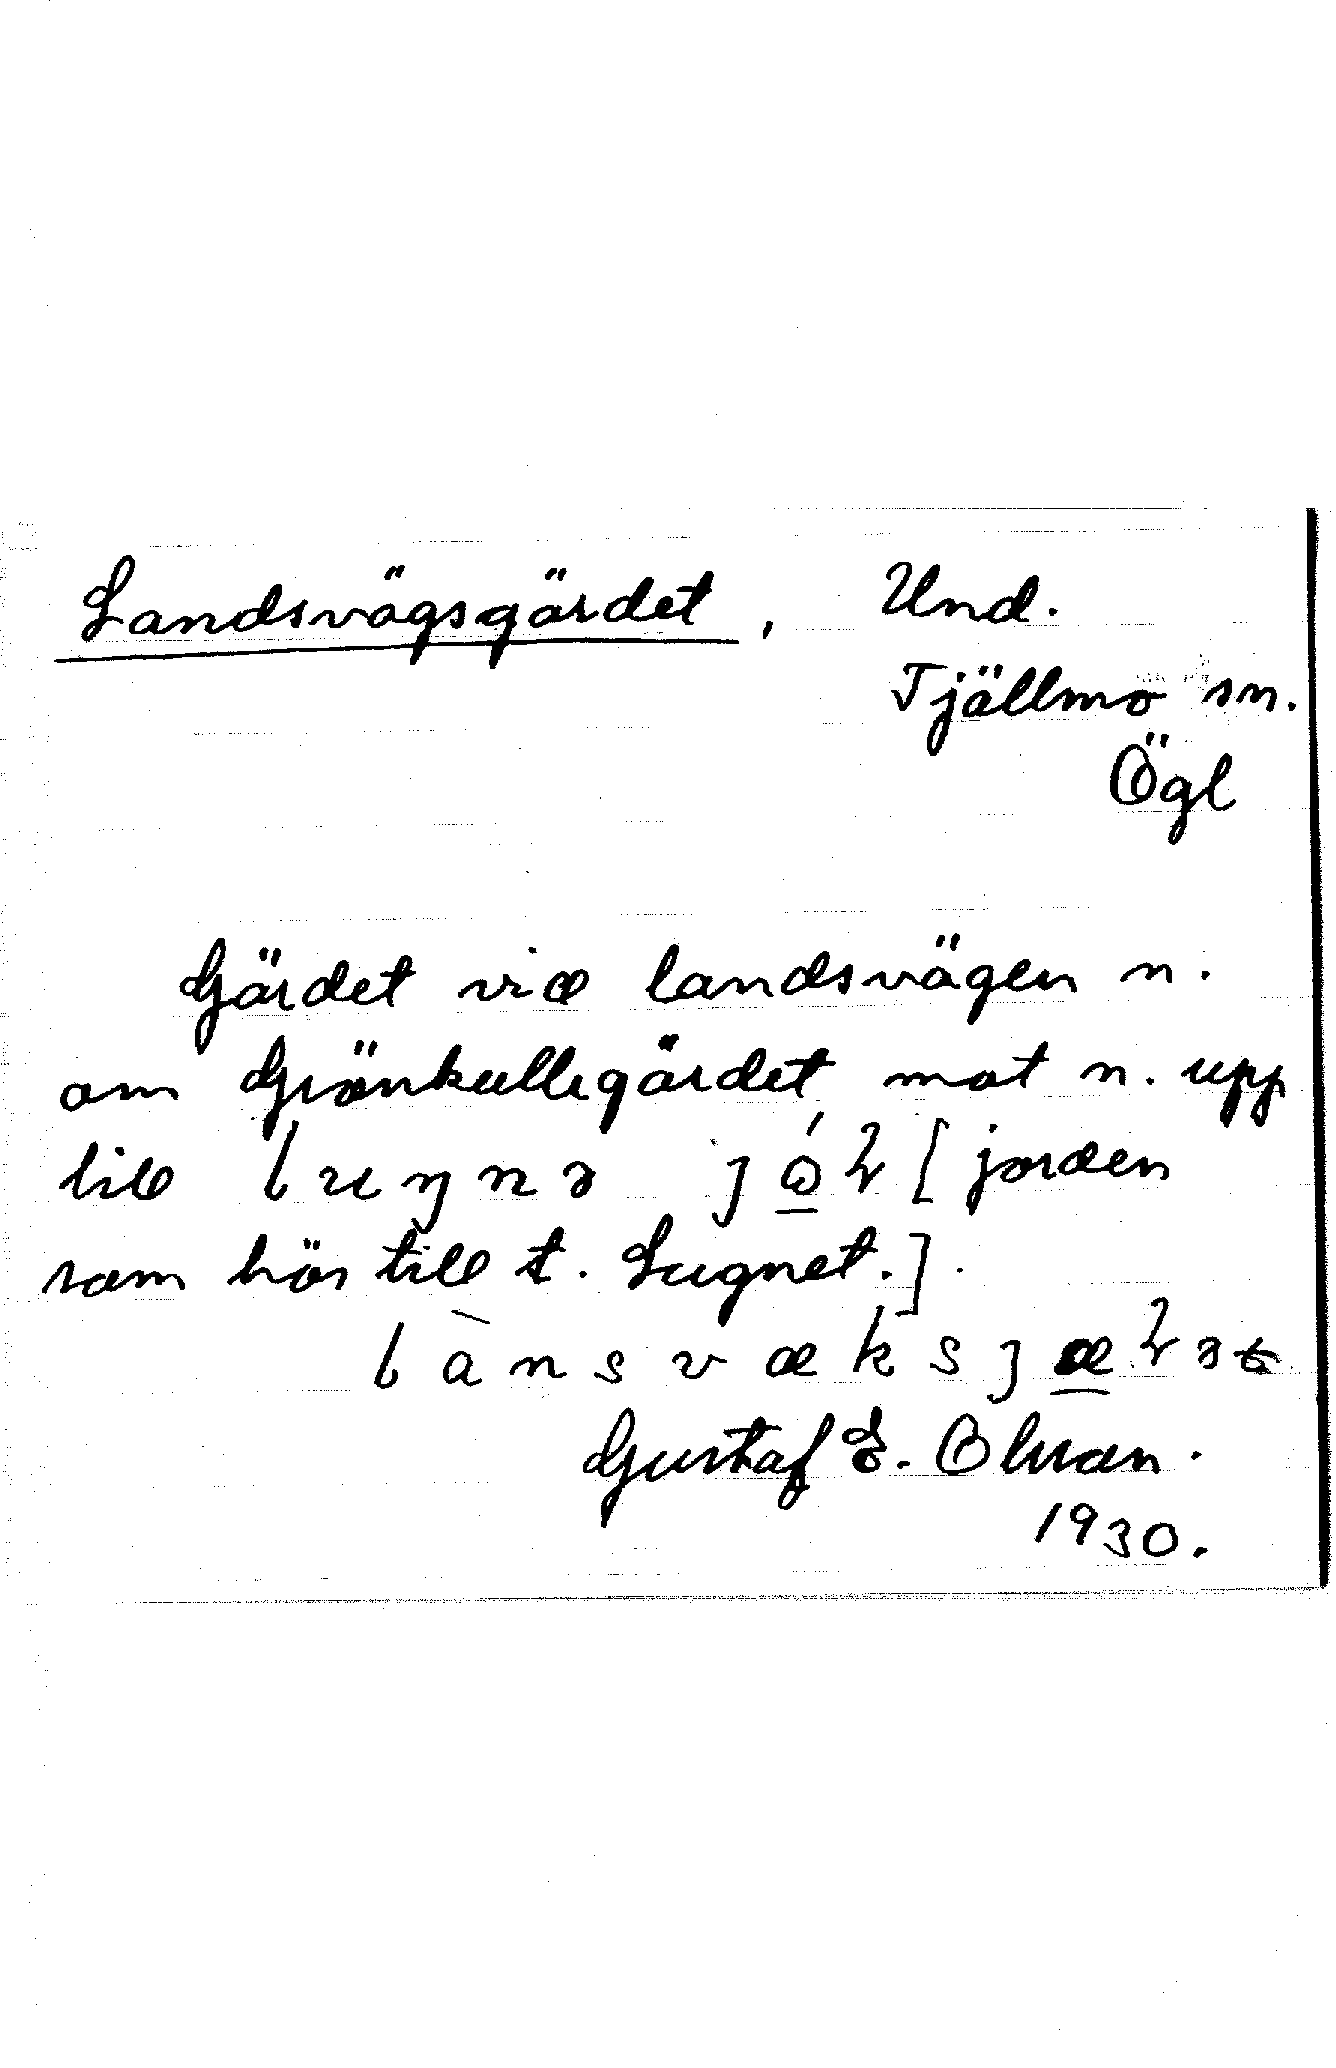 Landsvägsgärdet, Und.
Tjällmo sn.
Ögl
Gärdet vid landsvägen n.
om Grönkullegärdet mot n. upp
till [jorden
som hör till t. Lugnet.].
Gustaf E. Olson.
1930.